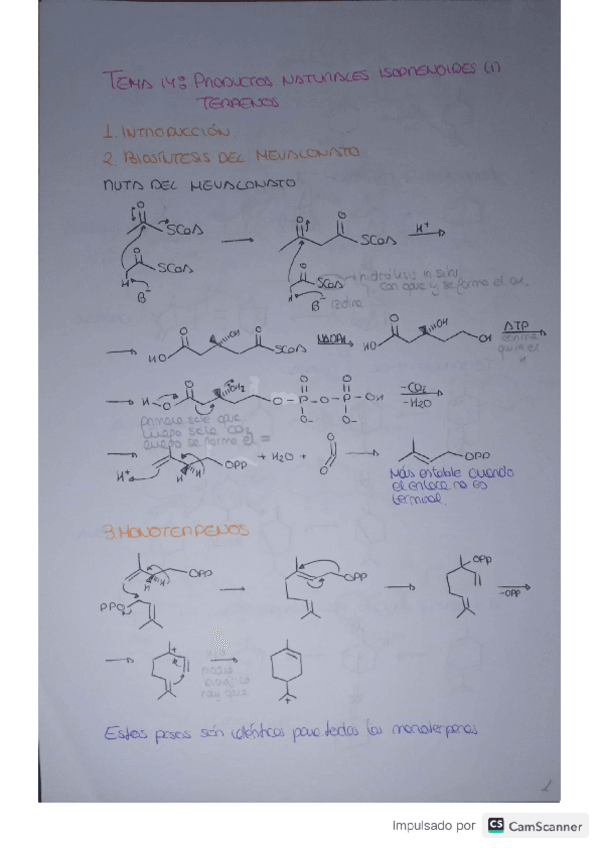 TEMA 14: PRODUCTOS NATURALES ISOPRENOIDES (I)
TERPENOS
1. INTRODUCCIÓN
2. BIOSÍNTESIS DEL MEVALONATO
RUTA DEL MEVALONATO
O
SCoA
O
SCoA
H
B⁻
O O
SCoA
H⁺
O
SCoA
hidrólisis in situ
H
B⁻
con que y se forma el
O OH O
HO SCoA
NADPH
O OH
HO OH
ATP
H-O O OH₂ O-P-O-P-OH
O O
O⁻ O⁻
-CO₂
-H₂O
primero sale que
luego sale CO₂
luego se forma el =
H⁺ H H OPP
+ H₂O +
O
C
O
OPP
Más estable cuando
el enlace no es
terminal.
3. MONOTERPENOS
OPP
H H
PPO
OPP
OPP
-OPP
+
+
Estos pasos son idénticos para todos los monoterpenos
1
Impulsado por CS CamScanner